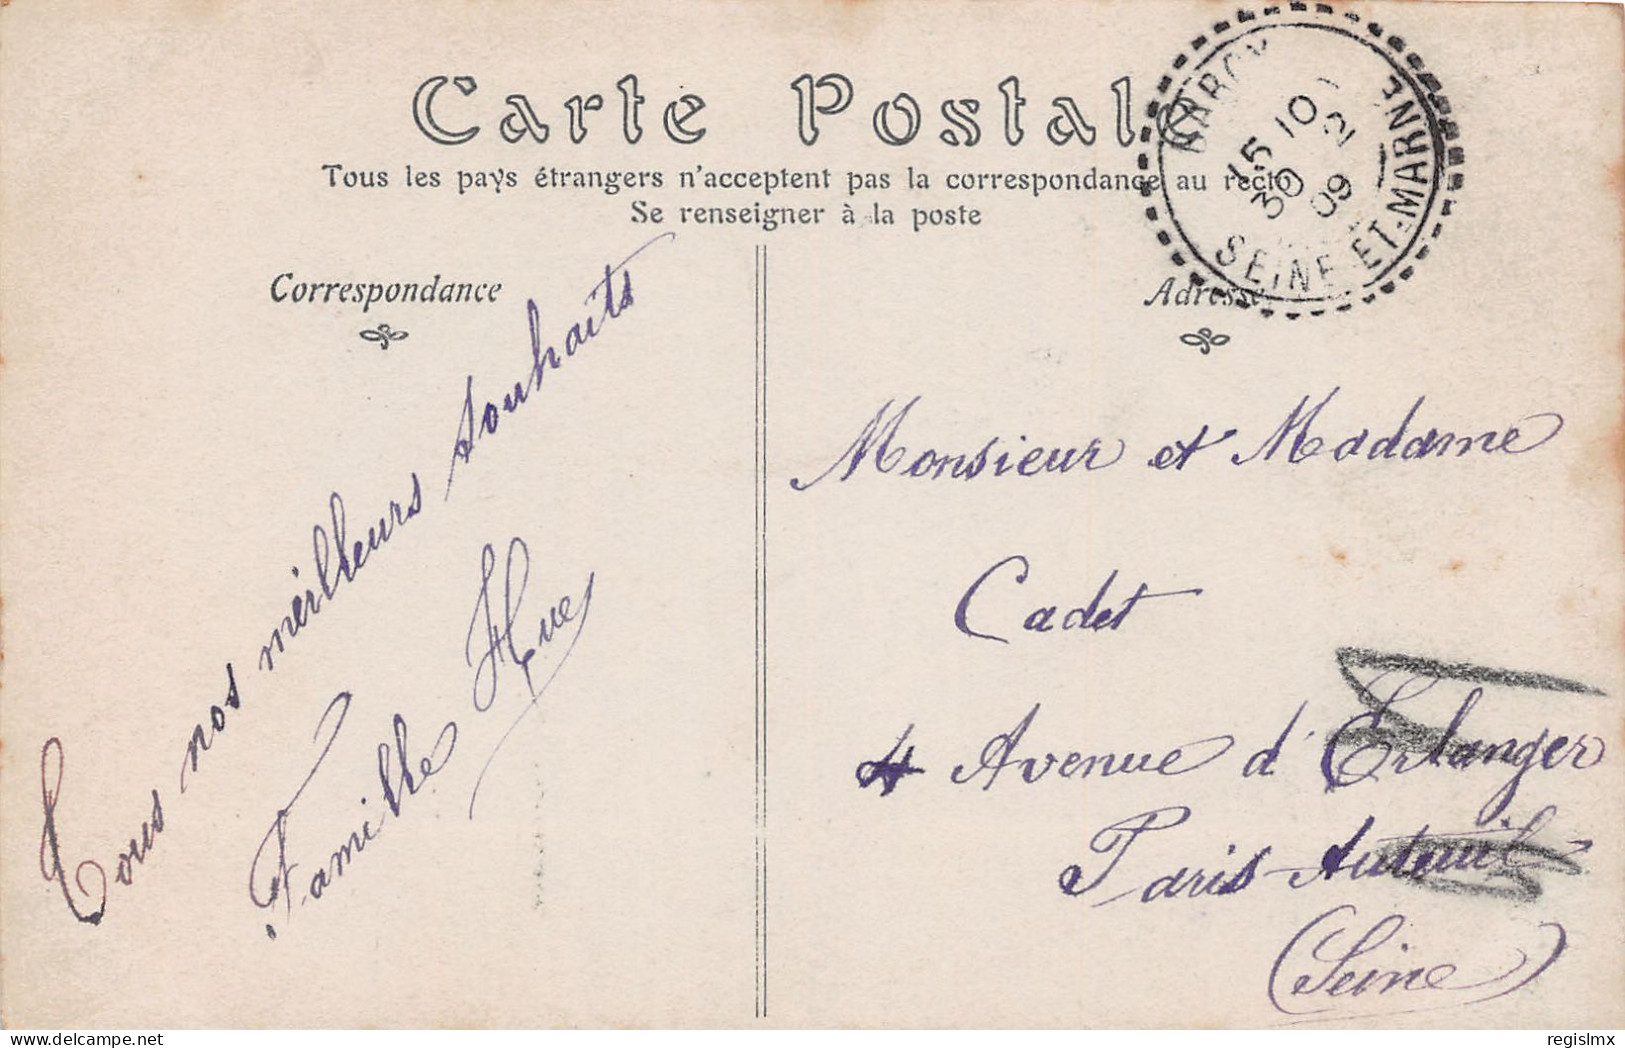 Carte Postale
Tous les pays étrangers n'acceptent pas la correspondance au recto
Se renseigner à la poste
Correspondance
Tous nos meilleurs souhaits
Famille Hue
Adresse
Monsieur et Madame
Cadet
4 Avenue d'Erlanger
Paris-Auteuil
(Seine)
15 10
30 12
09
SEINE-ET-MARNE
delcampe.net
regislmx